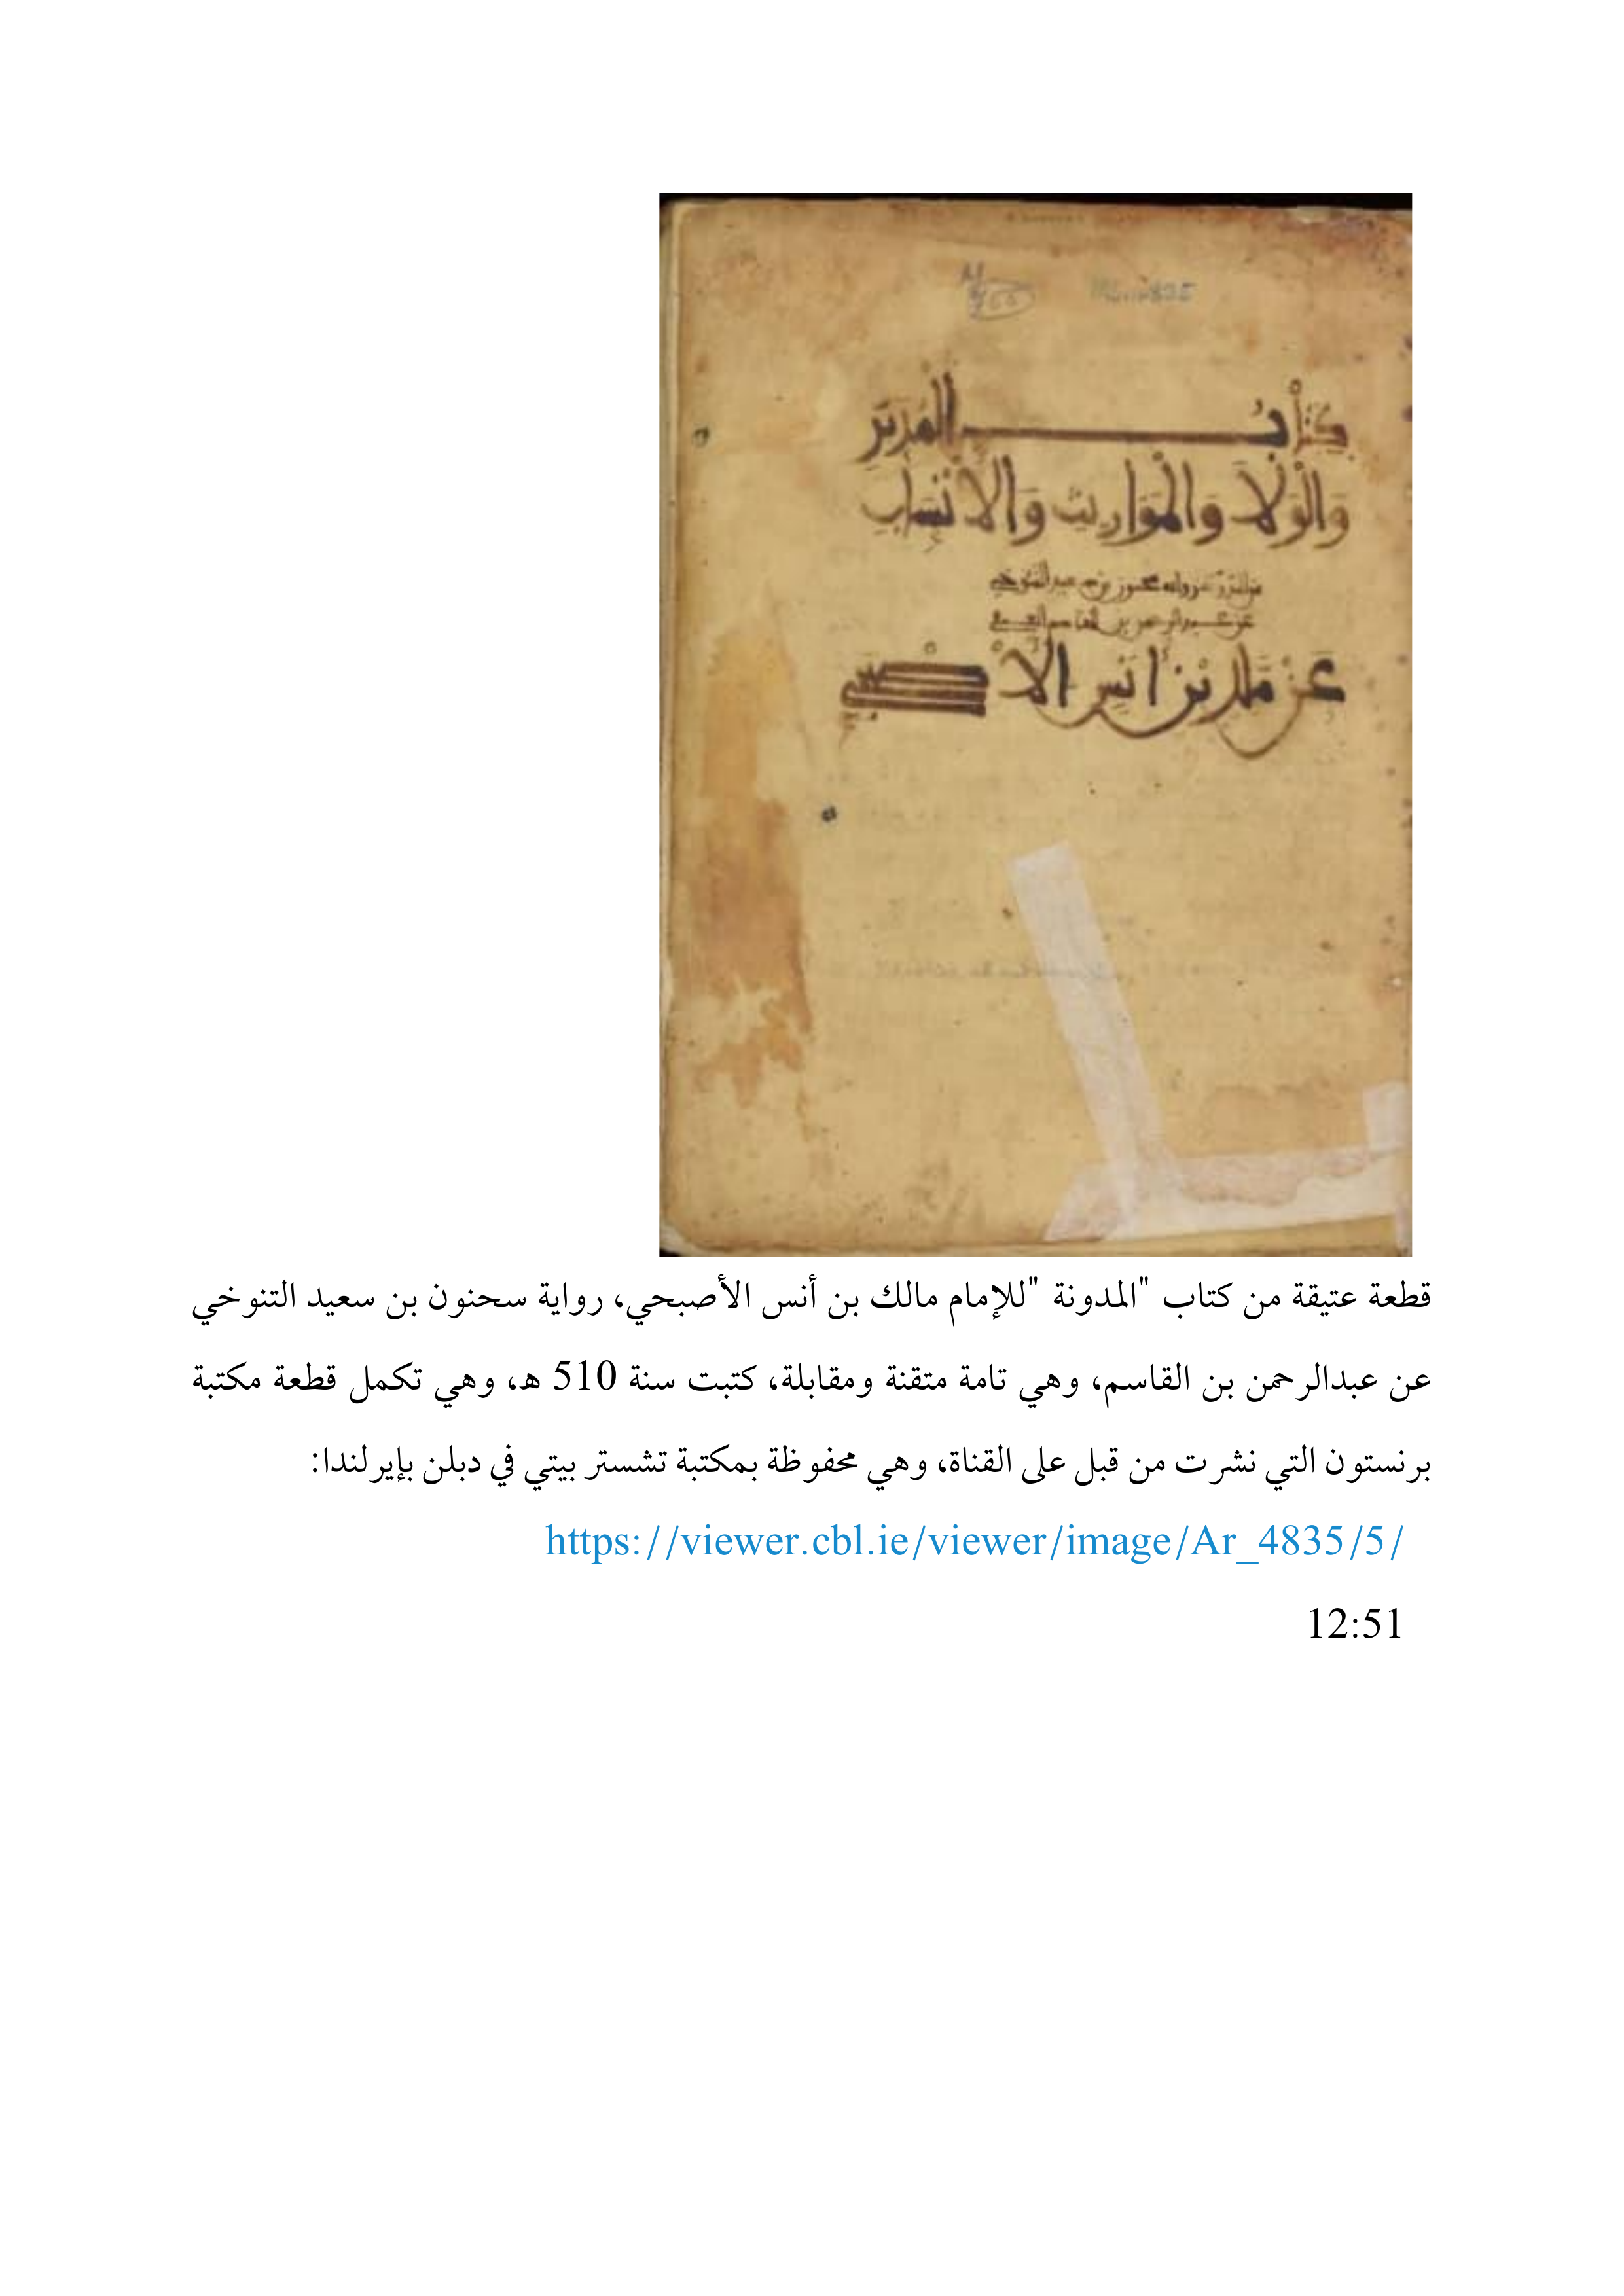 كِتَابُ المُدَبَّرِ
وَالْوَلَا وَالْمَوَارِيثِ وَالْانْسَابِ
من المدونة رواية سحنون بن سعيد التنوخي
عن عبد الرحمن بن القاسم العتقي
عَنْ مَلِكِ بْنِ انَسٍ الاصْبَحِي
قطعة عتيقة من كتاب "المدونة "للإمام مالك بن أنس الأصبحي، رواية سحنون بن سعيد التنوخي
عن عبدالرحمن بن القاسم، وهي تامة متقنة ومقابلة، كتبت سنة 510 ه، وهي تكمل قطعة مكتبة
برنستون التي نشرت من قبل على القناة، وهي محفوظة بمكتبة تشستر بيتي في دبلن بإيرلندا:
https://viewer.cbl.ie/viewer/image/Ar_4835/5/
12:51